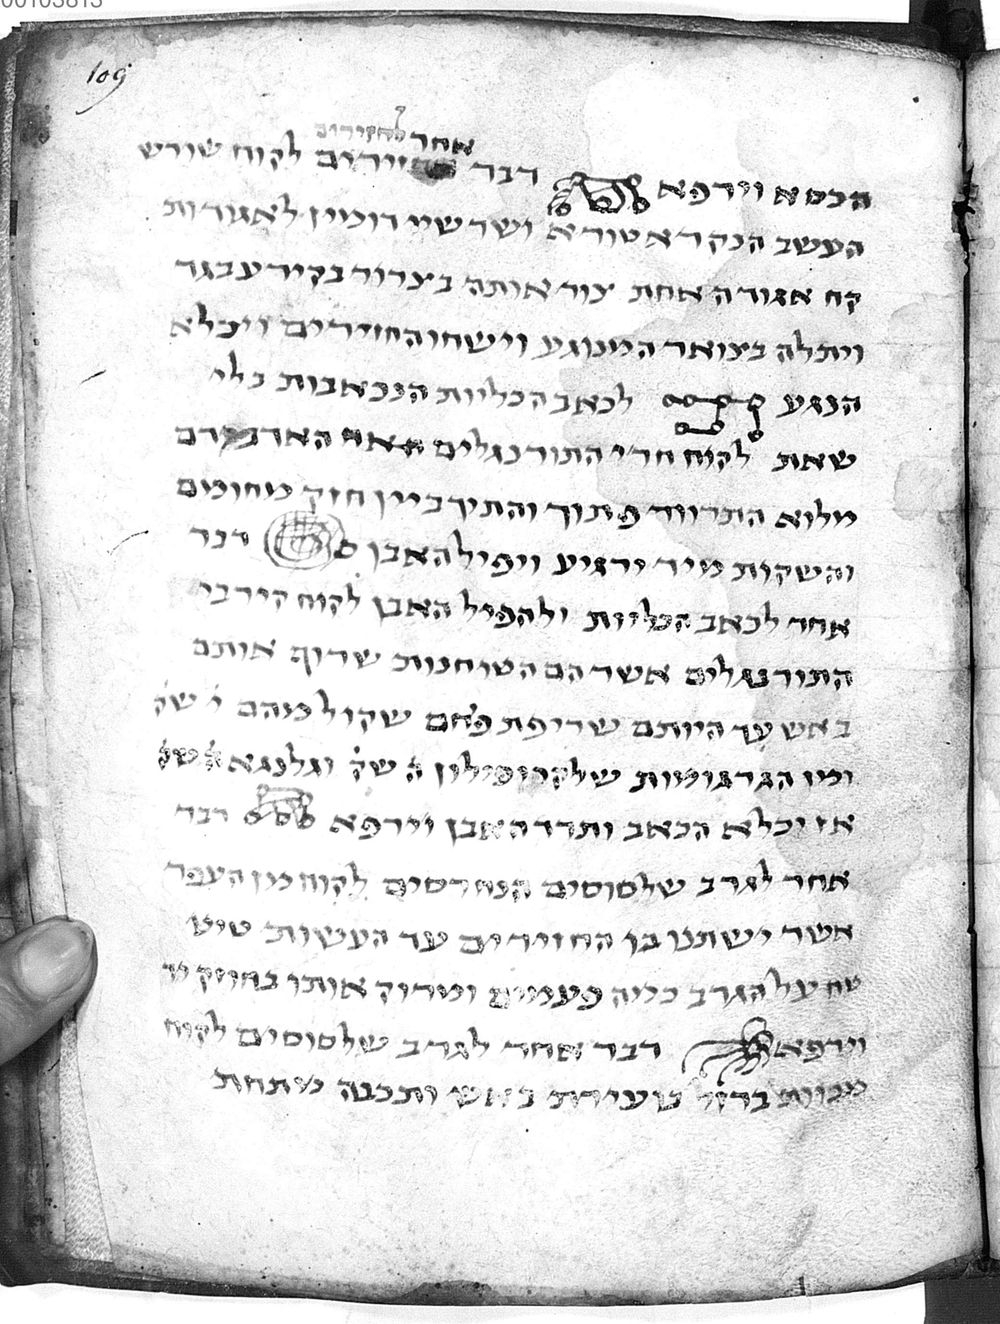 00103813
109
אחר לחזירים
הכסא וירפא דבר לקוח שורש
העשב הנקרא טורא ושרשיו רומין לאגודות
קח אגודה אחת צור אותה בצרור בקיר עבגד
ויתלה בצואר המנוגע וישחו החזירים ויכלא
הנגע לכאב הכליות הנכאבות בלי
שאת לקוח חרי התורנגלים
מלוא התרווד פתוך והתיך ביין חזק מחומם
והשקות מיד ירגיע ויפיל האבן דבר
אחר לכאב הכליות ולהפיל האבן לקוח קירבי
התורנגלים אשר הם הטוחנות שרוף אותם
באש עד היותם שריפת פחם שקול מהם י שק
ומן הגרגומות של ה שק וגלנגא ה שק
אז יכלא הכאב ותרד האבן וירפא דבר
אחר לגרב של סוסים הנחרסים לקוח מן העפר
אשר ישתנו בו החזירים עד העשות טיט
טח על הגרב כמה פעמים ומרוק אותו בחוזק יד
וירפא דבר אחר לגרב של סוסים לקוח
מכוות ברזל בוערת באש ותכבה מתחת